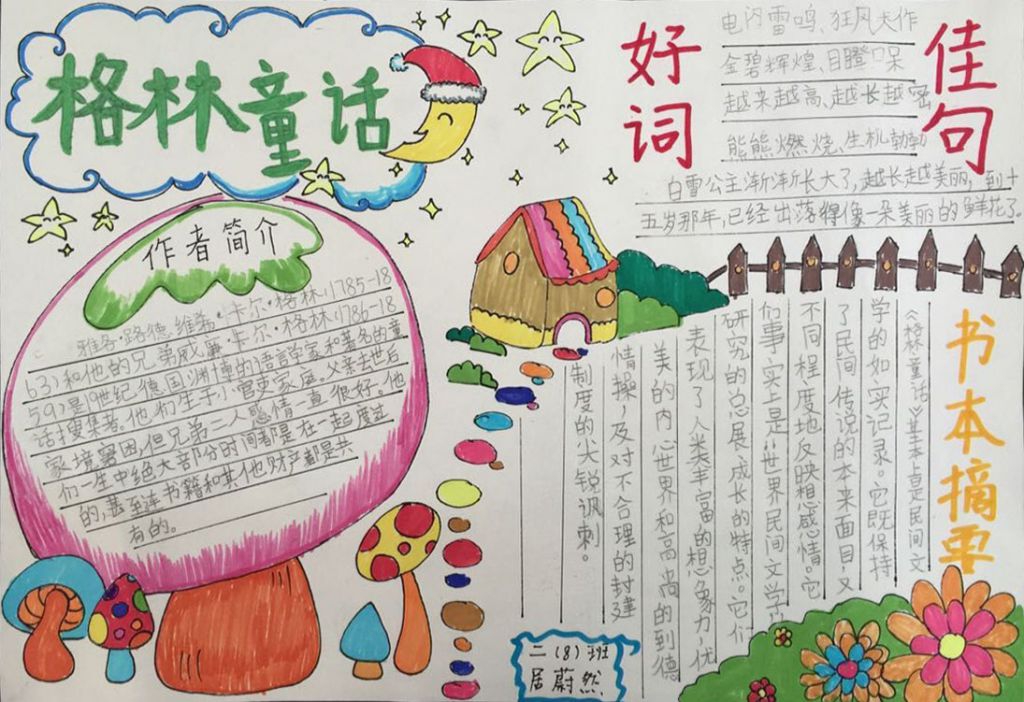 格林童话
作者简介
雅各·路德维希·卡尔·格林(1785-18
63)和他的兄弟威廉·卡尔·格林(1786-18
59)是19世纪德国渊博的语言学家和著名的童
话搜集者。他们生于小官吏家庭。父亲去世后
家境窘困,但兄弟二人感情一直很好。他
们一生中绝大部分时间都是在一起度过
的,甚至连书籍和其他财产都是共
有的。
好词
佳句
电闪雷鸣、狂风大作
金碧辉煌、目瞪口呆
越来越高、越长越密
熊熊燃烧、生机勃勃
白雪公主渐渐长大了,越长越美丽,到十
五岁那年,已经出落得像一朵美丽的鲜花了。
书本摘要
《格林童话》基本点是民间文
学的如实记录。它既保持
了民间传说的本来面目又
不同程度地反映想感情。它
们事实上是“世界民间文学
研究的总展,成长的特点。它们
表现了人类丰富的想象力,优
美的内心世界和高尚的到德
情操,及对不合理的封建
制度的尖锐讽刺。
二(8)班
居蔚然